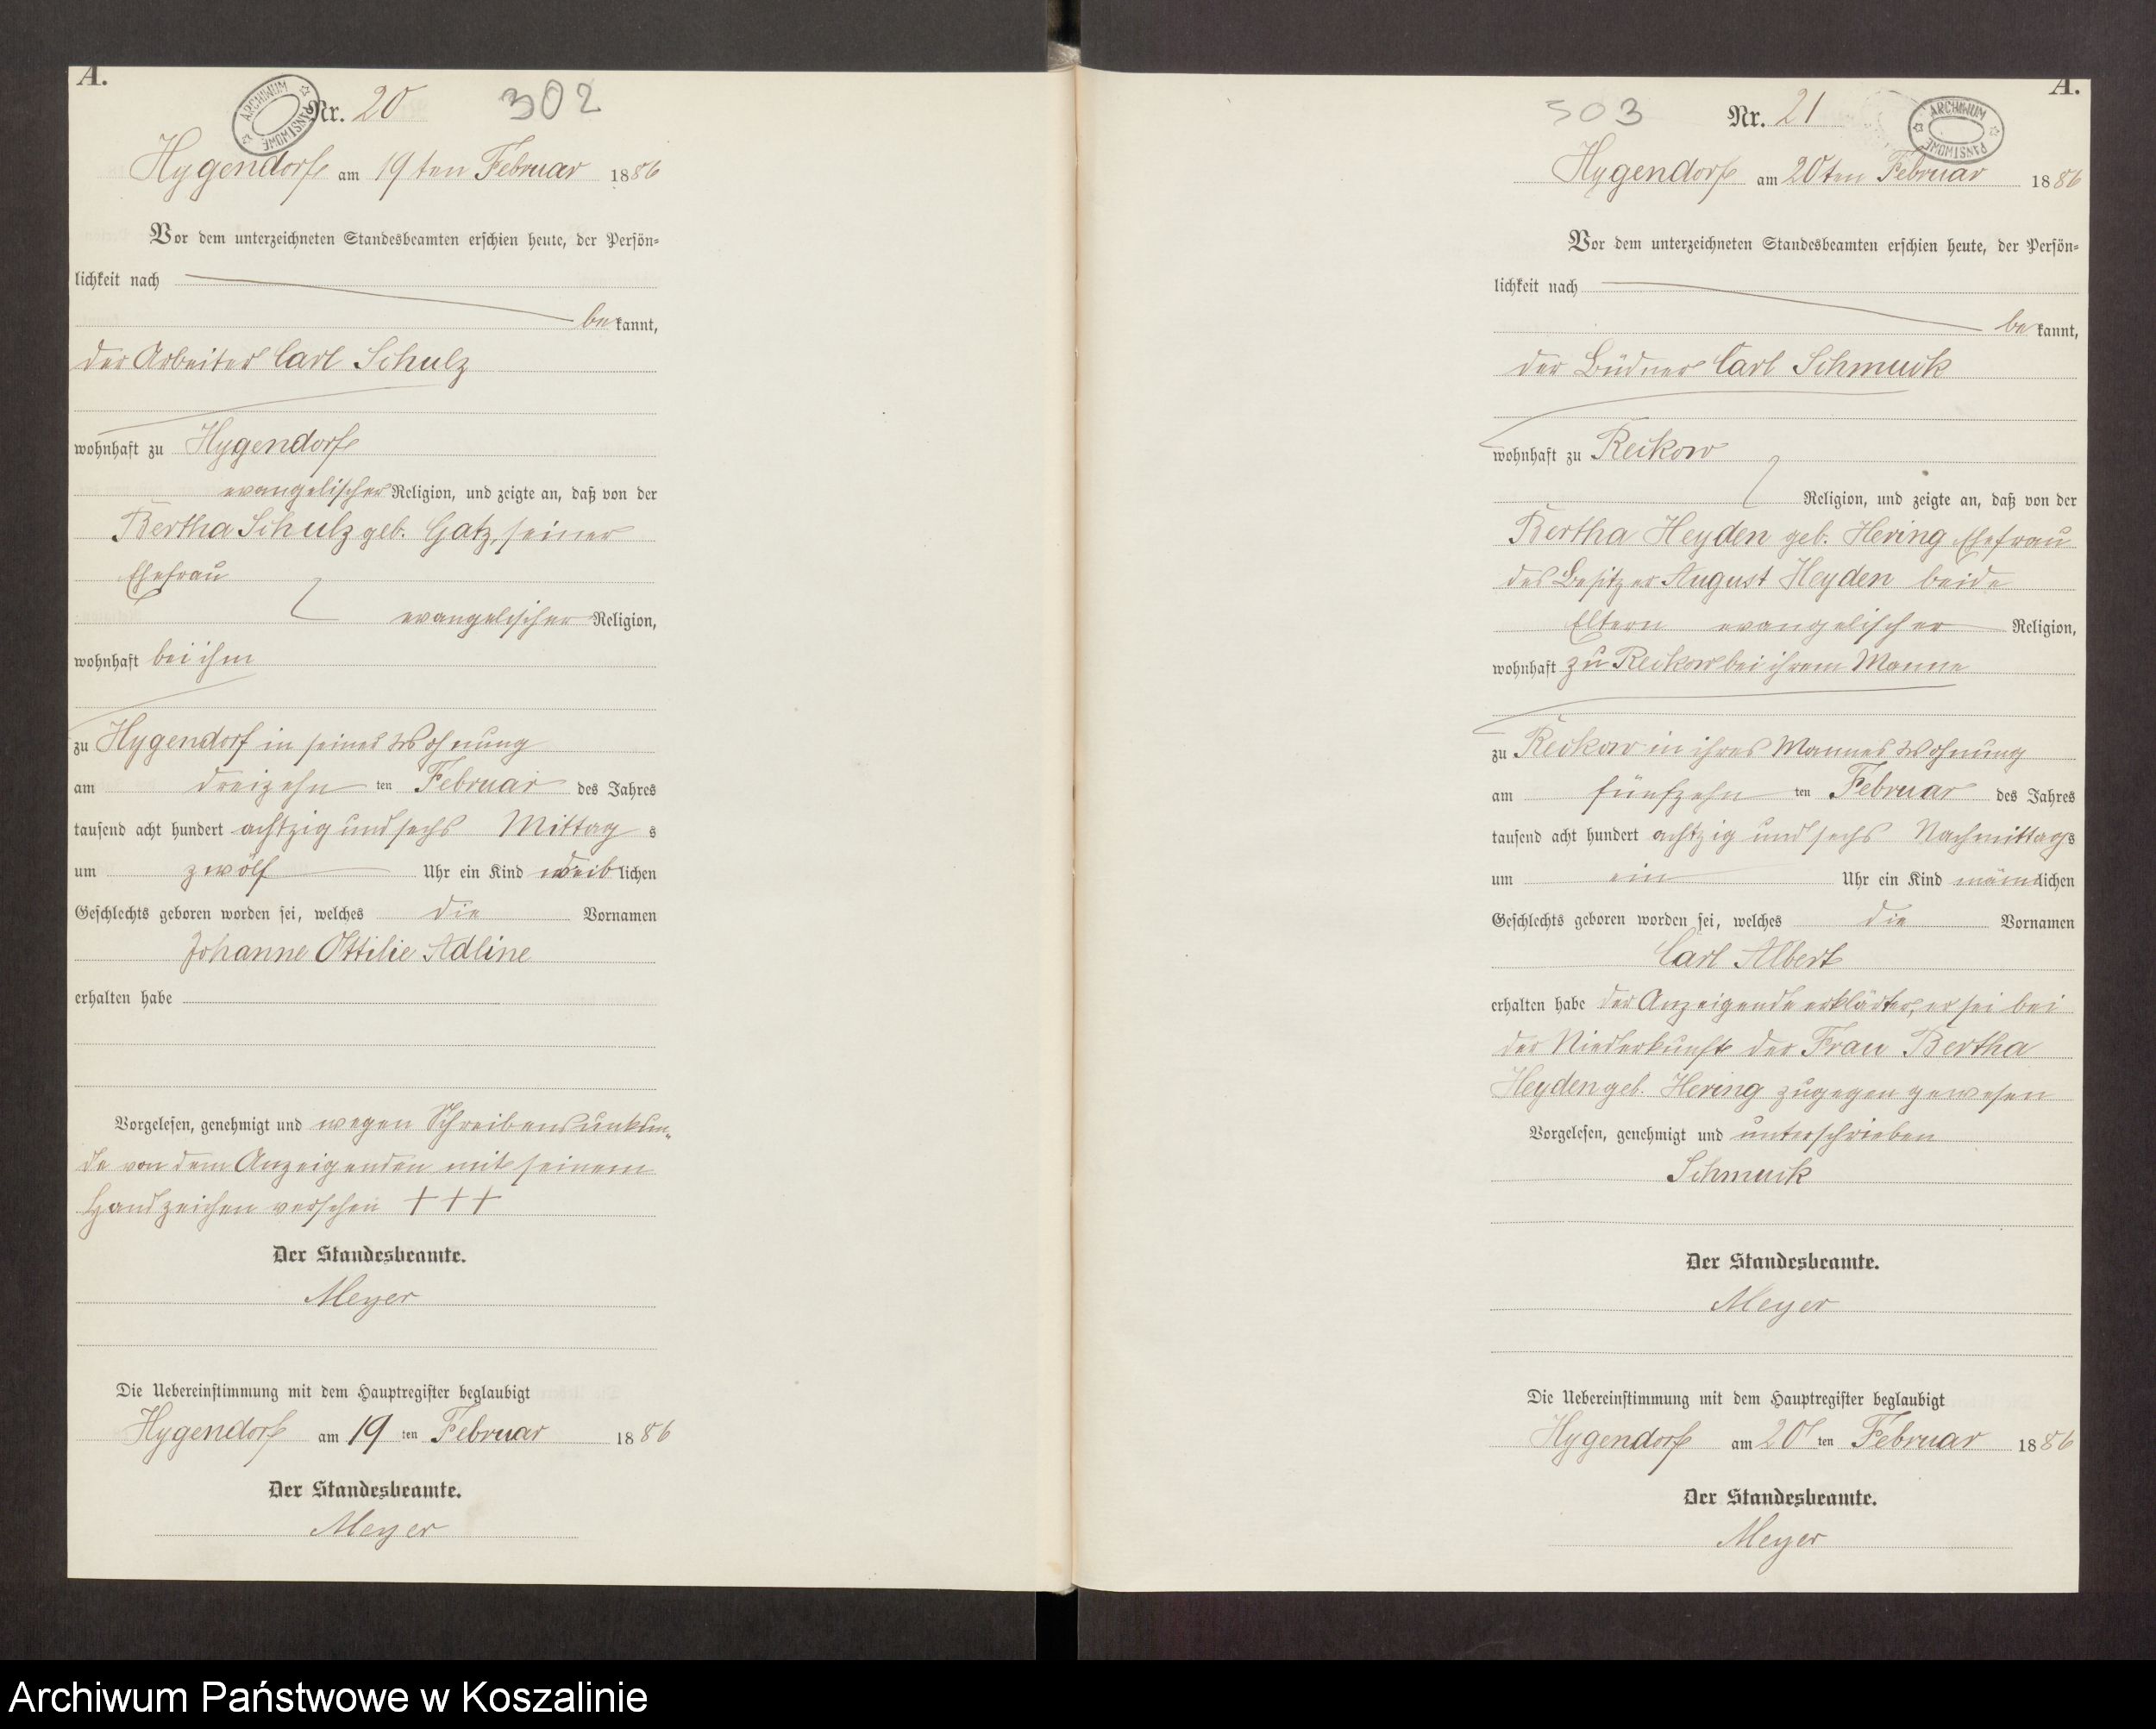 A.
ARCHIWUM PAŃSTWOWE
Nr. 20
302
Hygendorf am 19ten Februar 1886
Vor dem unterzeichneten Standesbeamten erschien heute, der Persön=
lichkeit nach
bekannt,
der Arbeiter Carl Schulz
wohnhaft zu Hygendorf
evangelischer Religion, und zeigte an, daß von der
Bertha Schulz geb. Gatz, seiner
Ehefrau
evangelischer Religion,
wohnhaft bei ihm
zu Hygendorf in seiner Wohnung
am dreizehn ten Februar des Jahres
tausend acht hundert achtzig und sechs Mittag s
um zwölf Uhr ein Kind weiblichen
Geschlechts geboren worden sei, welches die Vornamen
Johanne Ottilie Adline
erhalten habe
Vorgelesen, genehmigt und wegen Schreibensunkun„
de von dem Anzeigenden mit seinem
Handzeichen versehen +++
Der Standesbeamte.
Meyer
Die Uebereinstimmung mit dem Hauptregister beglaubigt
Hygendorf am 19 ten Februar 1886
Der Standesbeamte.
Meyer
A.
303
Nr. 21
ARCHIWUM PAŃSTWOWE
Hygendorf am 20ten Februar 1886
Vor dem unterzeichneten Standesbeamten erschien heute, der Persön=
lichkeit nach
bekannt,
der Büdner Carl Schmuck
wohnhaft zu Reckow
Religion, und zeigte an, daß von der
Bertha Heyden geb. Hering Ehefrau
des Besitzer August Heyden beide
Eltern evangelischer Religion,
wohnhaft zu Reckow bei ihrem Manne
zu Reckow in ihres Mannes Wohnung
am fünfzehn ten Februar des Jahres
tausend acht hundert achtzig und sechs Nachmittags
um ein Uhr ein Kind männlichen
Geschlechts geboren worden sei, welches die Vornamen
Carl Albert
erhalten habe der Anzeigende erklärter, er sei bei
der Niederkunft der Frau Bertha
Heyden geb. Hering zugegen gewesen
Vorgelesen, genehmigt und unterschrieben
Schmuck
Der Standesbeamte.
Meyer
Die Uebereinstimmung mit dem Hauptregister beglaubigt
Hygendorf am 20 ten Februar 1886
Der Standesbeamte.
Meyer
Archiwum Państwowe w Koszalinie